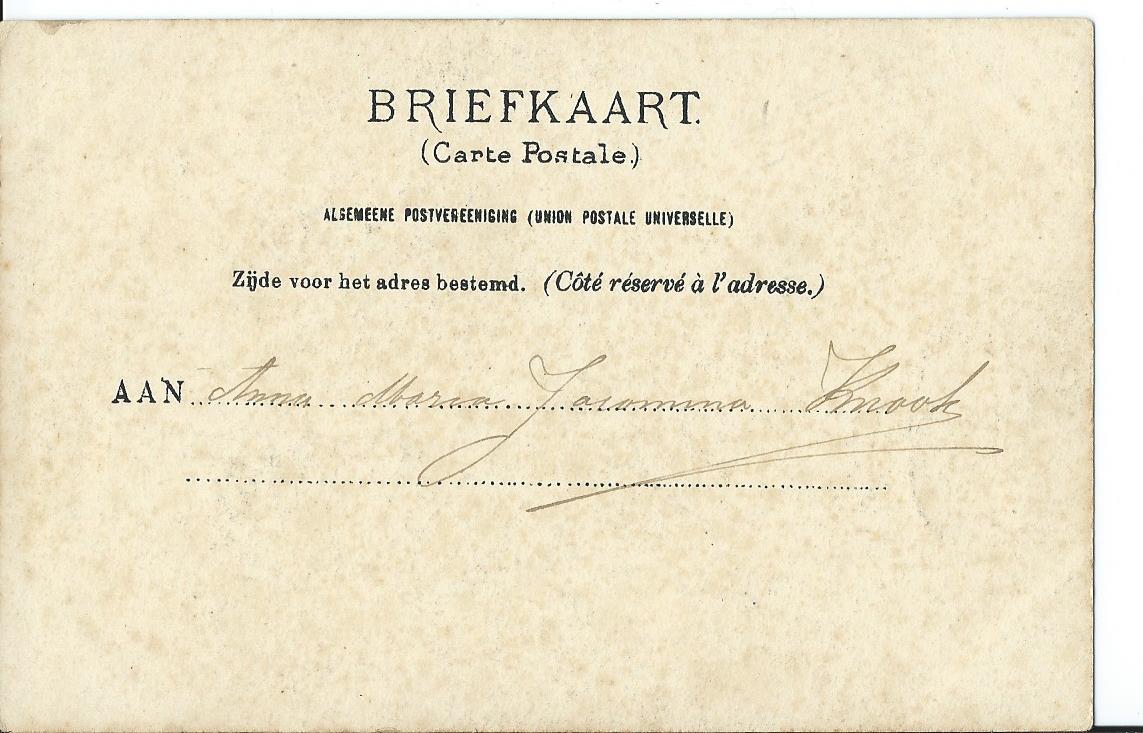 BRIEFKAART.
(Carte Postale.)
ALGEMEENE POSTVEREENIGING (UNION POSTALE UNIVERSELLE)
Zijde voor het adres bestemd. (Côté réservé à l'adresse.)
AAN Anna Maria Jacomina Knook